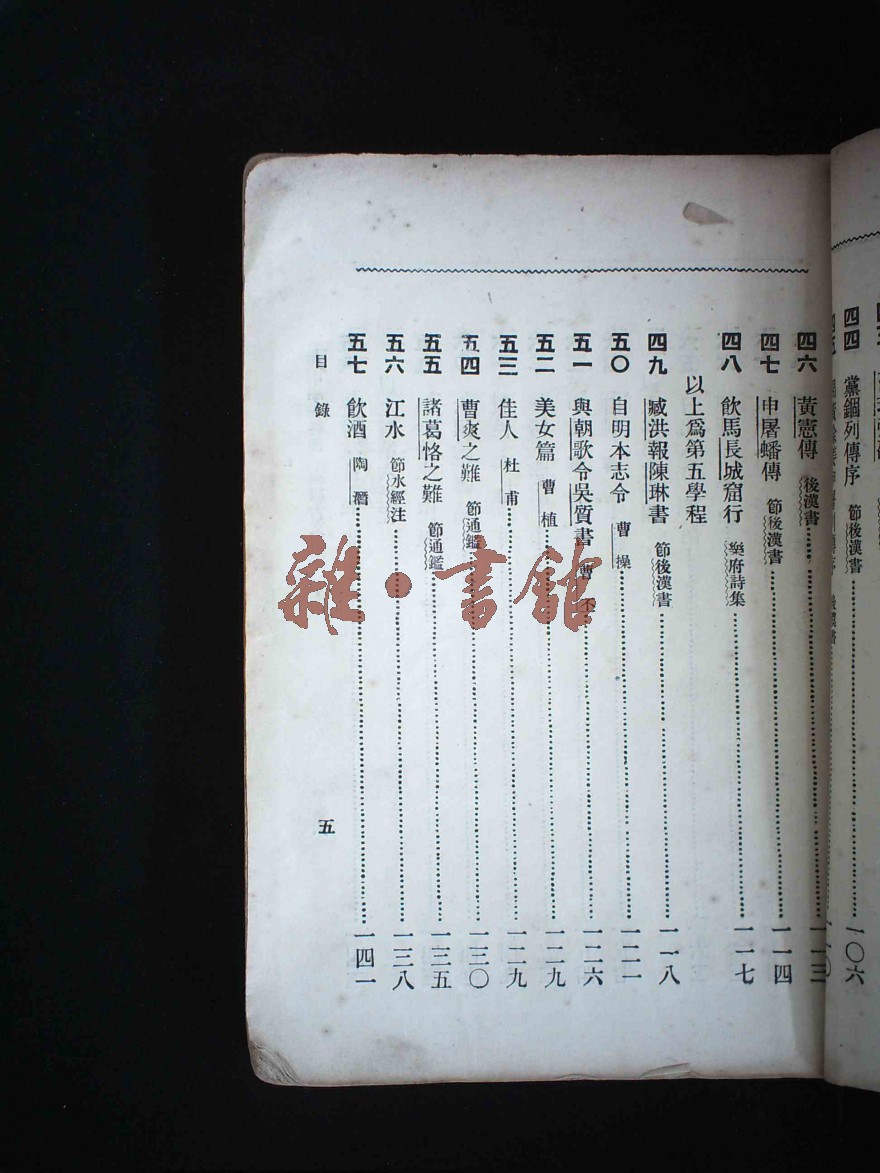 四四　黨錮列傳序　節後漢書　一〇六
四六　黃憲傳　後漢書　一一三
四七　申屠蟠傳　節後漢書　一一四
四八　飲馬長城窟行　樂府詩集　一一七
以上爲第五學程
四九　臧洪報陳琳書　節後漢書　一一八
五〇　自明本志令　曹操　一二一
五一　與朝歌令吳質書　曹丕　一二六
五二　美女篇　曹植　一二九
五三　佳人　杜甫　一二九
五四　曹爽之難　節通鑑　一三〇
五五　諸葛恪之難　節通鑑　一三五
五六　江水　節水經注　一三八
五七　飲酒　陶潛　一四一
目錄
五
雜·書館